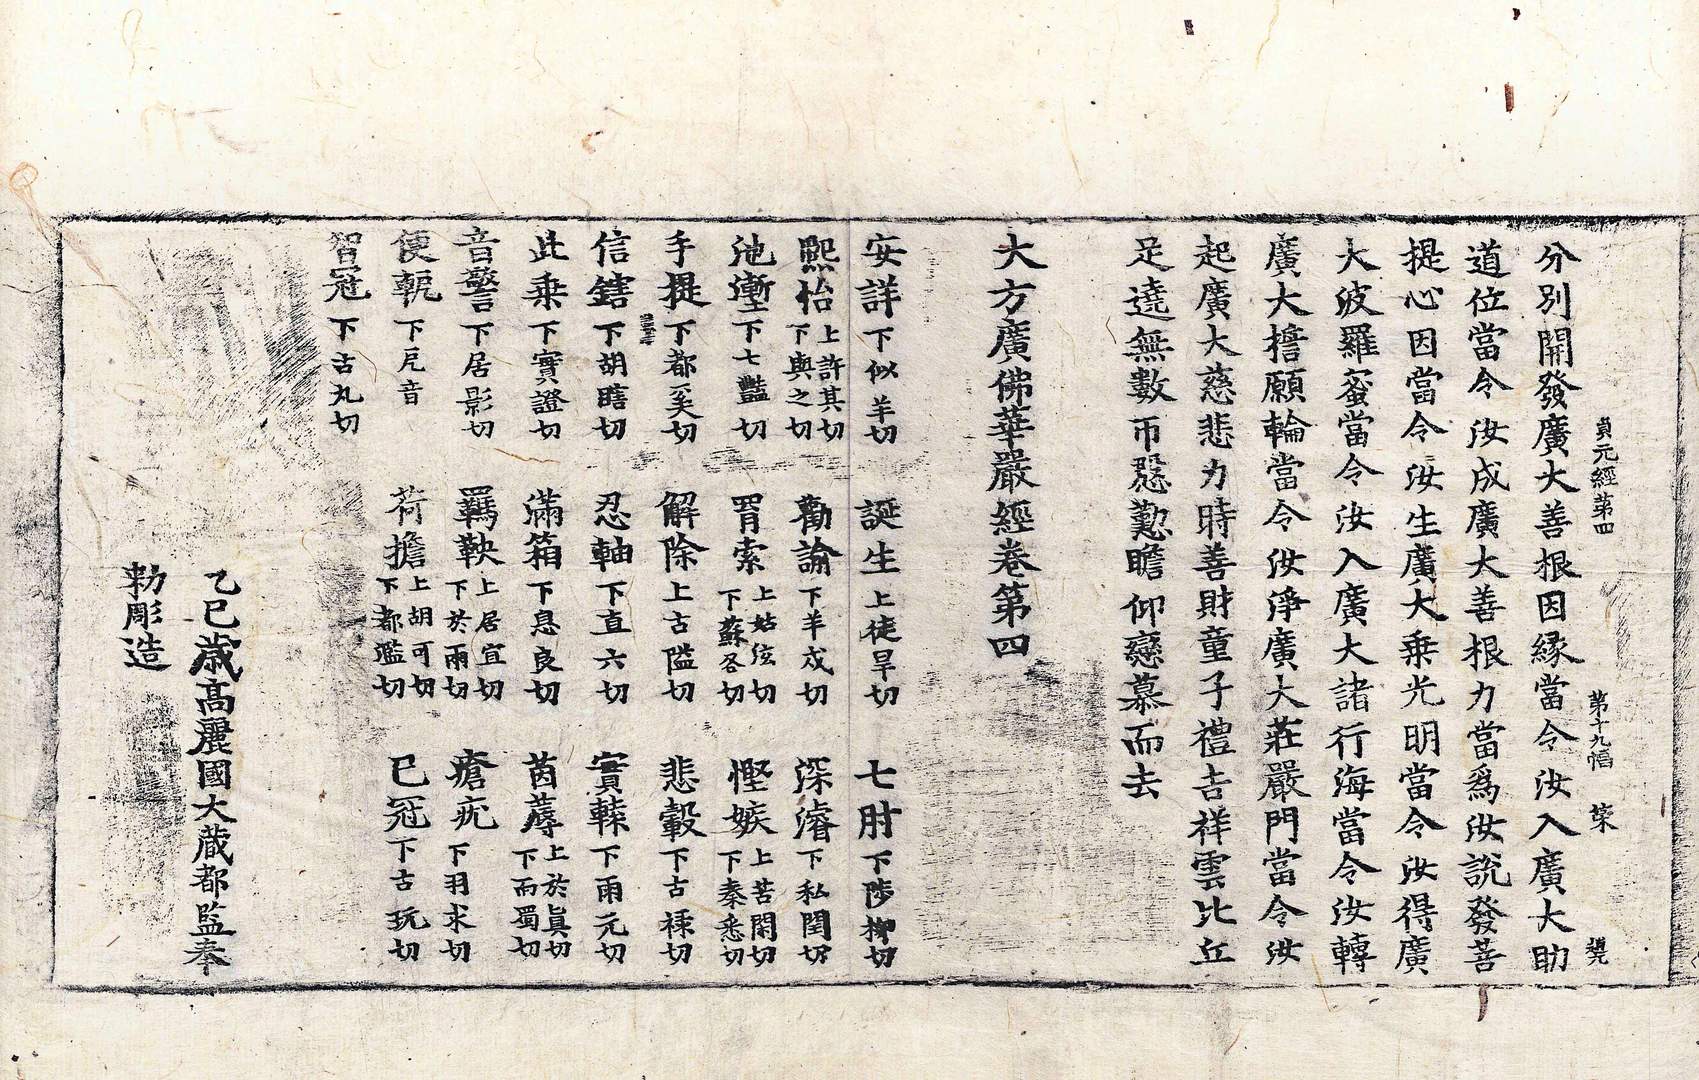 貞元經第四 第十九幅 榮
分別開發廣大善根因緣當令汝入廣大助
道位當令汝成廣大善根力當爲汝說發菩
提心因當令汝生廣大乗光明當令汝得廣
大波羅蜜當令汝入廣大諸行海當令汝轉
廣大擔願輪當令汝淨廣大莊嚴門當令汝
起廣大慈悲力時善財童子禮吉祥雲比丘
足遶無數帀慇懃瞻仰戀慕而去
大方廣佛華嚴經卷第四
安詳下似羊切 誕生上徒旱切 七肘下陟柳切
熙怡上許其切下與之切 勸諭下羊戍切 深濬下私閏切
池塹下七豔切 罥索上姑泫切下蘇各切 慳嫉上苦閑切下秦悉切
手提下都奚切 解除上古隘切 悲轂下古祿切
信鎋下胡瞎切 忍軸下直六切 實輮下而元切
此乗下實證切 滿箱下息良切 茵蓐上於眞切下而蜀切
音警下居影切 羈鞅上居宜切下於兩切 瘡疣下羽求切
便軛下戹音 荷擔上胡可切下都濫切 已冠下古玩切
智冠下古丸切
乙巳歲高麗國大藏都監奉
勅彫造